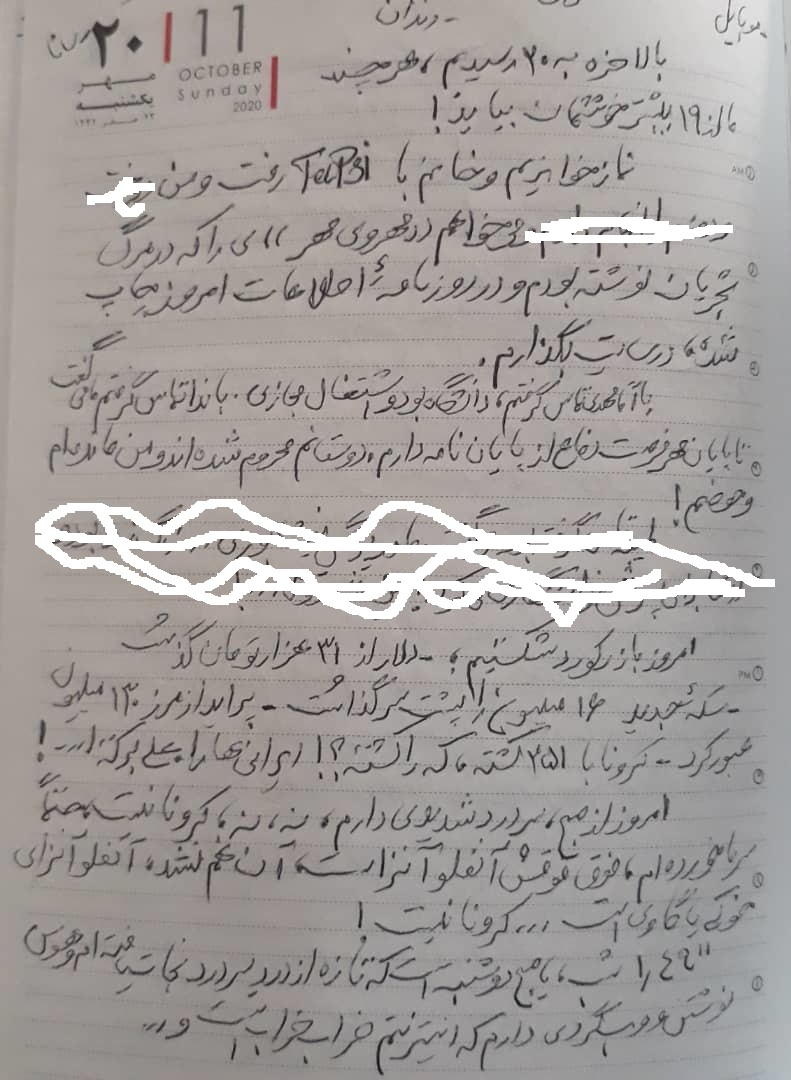 موبایل
- دندان
۲۰ 11
مهر OCTOBER
یکشنبه Sunday
۲۳ صفر ۱۴۴۲ 2020
بالاخره به ۲۰ رسیدیم، هرچند
از ۱۹ بیشتر خوشمان بیاید!
نماز خواندیم و خانم با TaPSi رفت و من
می‌خواهم در مهروی مهر ۱۱ای را که در مرگ
شجریان نوشته بودم و در روزنامهٔ اطلاعات امروز چاپ
شده، در سایت بگذارم.
با آقا مهدی تماس گرفتم، دانشگاه بود و اشتغال مجازی. با ندا تماس گرفتم گفت
تا پایان مهر فرصت دفاع از پایان نامه دارم، دوستانم محروم شده‌اند و من مانده‌ام
و حوضم!
امروز باز رکورد شکستیم؛ - دلار از ۳۱ هزار تومان گذشت
- سکهٔ جدید ۱۶ میلیون را پشت سر گذاشت - پراید از مرز ۱۳۰ میلیون
عبور کرد - کرونا با ۲۵۱ کشته، که را کشته؟! ایرانی‌ها را، علی برکت ا...!
امروز از صبح، سردرد شدیدی دارم، نه، نه، کرونا نیست، حتماً
سرما خورده‌ام، فوق فوقش آنفلوآنزا است، آن هم نشد، آنفلوآنزای
خوکی یا گاوی است ... کرونا نیست!
شب، یا صبح دوشنبه است که تازه از درد سردرد نجات یافته‌ام و هوس
نوشتن و وبگردی دارم که اینترنتم خراب خراب است و ...